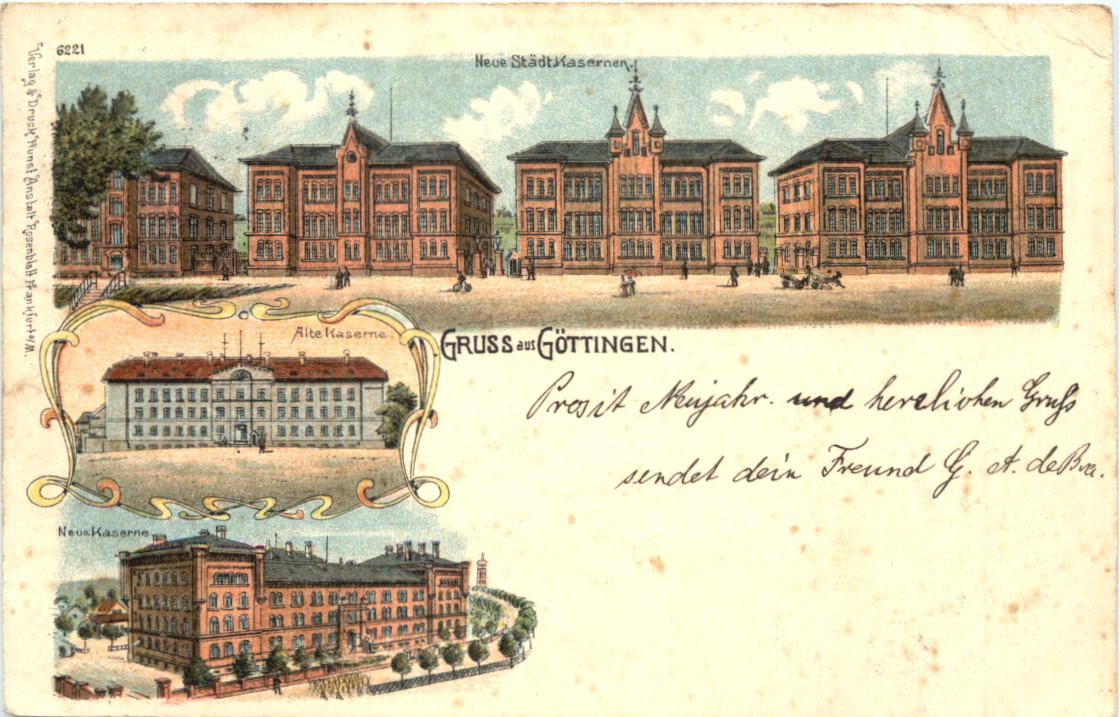 6221
Neue Städt. Kasernen.
Verlag & Druck Kunst Anstalt Rosenblatt Frankfurt a/M.
Alte Kaserne.
GRUSS aus GÖTTINGEN.
Prosit Neujahr. und herzlichen Gruß
sendet dein Freund G. A. de
Neue Kaserne